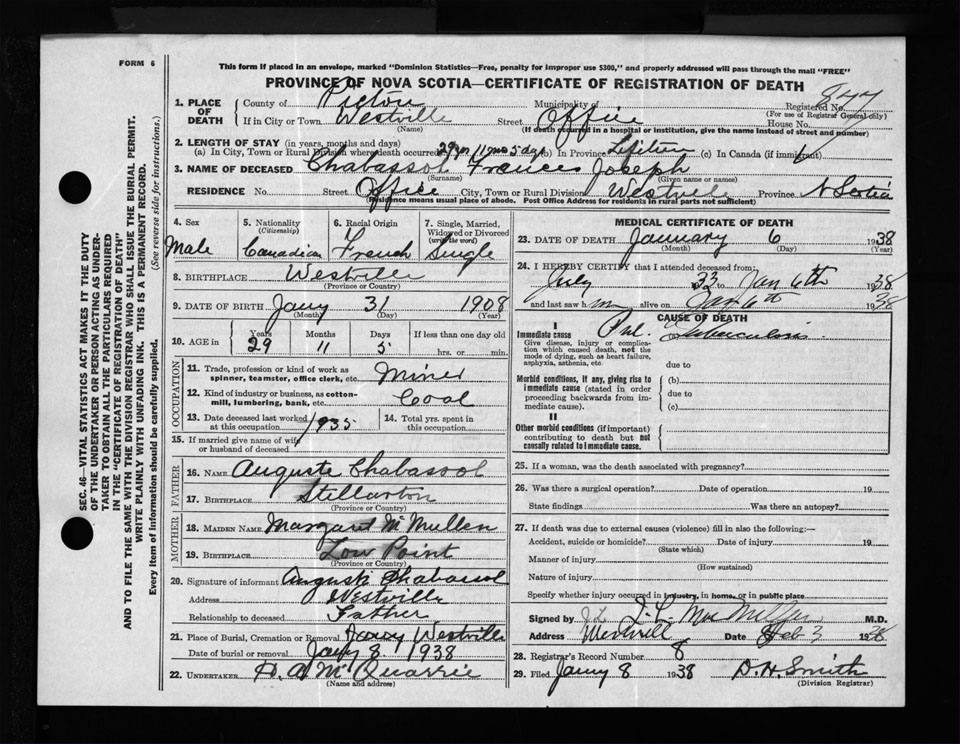 FORM 6
This form if placed in an envelope, marked "Dominion Statistics—Free, penalty for improper use $300," and properly addressed will pass through the mail "FREE"
PROVINCE OF NOVA SCOTIA—CERTIFICATE OF REGISTRATION OF DEATH
1. PLACE OF DEATH
County of Pictou Municipality of Registered No.
(For use of Registrar General only)
If in City or Town Westville Street Office House No.
(Name) (If death occurred in a hospital or institution, give the name instead of street and number)
2. LENGTH OF STAY (in years, months and days)
(a) In City, Town or Rural Division where death occurred 29 yrs 11 mos 5 days (b) In Province Lifetime (c) In Canada (if immigrant)
3. NAME OF DECEASED Chabassol Francis Joseph
(Surname) (Given name or names)
RESIDENCE No. Street Office City, Town or Rural Division Westville Province N Scotia
(Residence means usual place of abode. Post Office Address for residents in rural parts not sufficient)
4. Sex Male
5. Nationality (Citizenship) Canadian
6. Racial Origin French
7. Single, Married, Widowed or Divorced (write the word) Single
8. BIRTHPLACE Westville
(Province or Country)
9. DATE OF BIRTH Jany 31 1908
(Month) (Day) (Year)
10. AGE in Years 29 Months 11 Days 5 If less than one day old hrs. or min.
OCCUPATION
11. Trade, profession or kind of work as spinner, teamster, office clerk, etc. Miner
12. Kind of industry or business, as cotton-mill, lumbering, bank, etc. Coal
13. Date deceased last worked at this occupation 1935
14. Total yrs. spent in this occupation
15. If married give name of wife or husband of deceased
FATHER
16. NAME Auguste Chabassol
17. BIRTHPLACE Stellarton
(Province or Country)
MOTHER
18. MAIDEN NAME Margaret McMullen
19. BIRTHPLACE Low Point
(Province or Country)
20. Signature of informant Auguste Chabassol
Address Westville
Relationship to deceased Father
21. Place of Burial, Cremation or Removal Westville
Date of burial or removal Jany 8 1938
22. UNDERTAKER D. A McQuarrie
(Name and address)
MEDICAL CERTIFICATE OF DEATH
23. DATE OF DEATH January 6 1938
(Month) (Day) (Year)
24. I HEREBY CERTIFY that I attended deceased from:
July 33 to Jan 6th 1938
and last saw h m alive on Jan 6th 1938
CAUSE OF DEATH
I
Immediate cause Pul. Tuberculosis
Give disease, injury or complication which caused death, not the mode of dying, such as heart failure, asphyxia, asthenia, etc.
due to
Morbid conditions, if any, giving rise to immediate cause (stated in order proceeding backwards from immediate cause).
(b)
due to
(c)
II
Other morbid conditions (if important) contributing to death but not causally related to immediate cause.
25. If a woman, was the death associated with pregnancy?
26. Was there a surgical operation? Date of operation 19
State findings Was there an autopsy?
27. If death was due to external causes (violence) fill in also the following:—
Accident, suicide or homicide? Date of injury 19
(State which)
Manner of injury
(How sustained)
Nature of injury
Specify whether injury occurred in industry, in home, or in public place
Signed by MacMillan M.D.
Address Westville Date Feb 3 1938
28. Registrar's Record Number 8
29. Filed Jany 8 1938 D. H. Smith
(Division Registrar)
SEC. 46—VITAL STATISTICS ACT MAKES IT THE DUTY
OF THE UNDERTAKER OR PERSON ACTING AS UNDER-
TAKER TO OBTAIN ALL THE PARTICULARS REQUIRED
IN THE "CERTIFICATE OF REGISTRATION OF DEATH"
AND TO FILE THE SAME WITH THE DIVISION REGISTRAR WHO SHALL ISSUE THE BURIAL PERMIT.
WRITE PLAINLY WITH UNFADING INK. THIS IS A PERMANENT RECORD.
Every item of information should be carefully supplied. (See reverse side for instructions.)